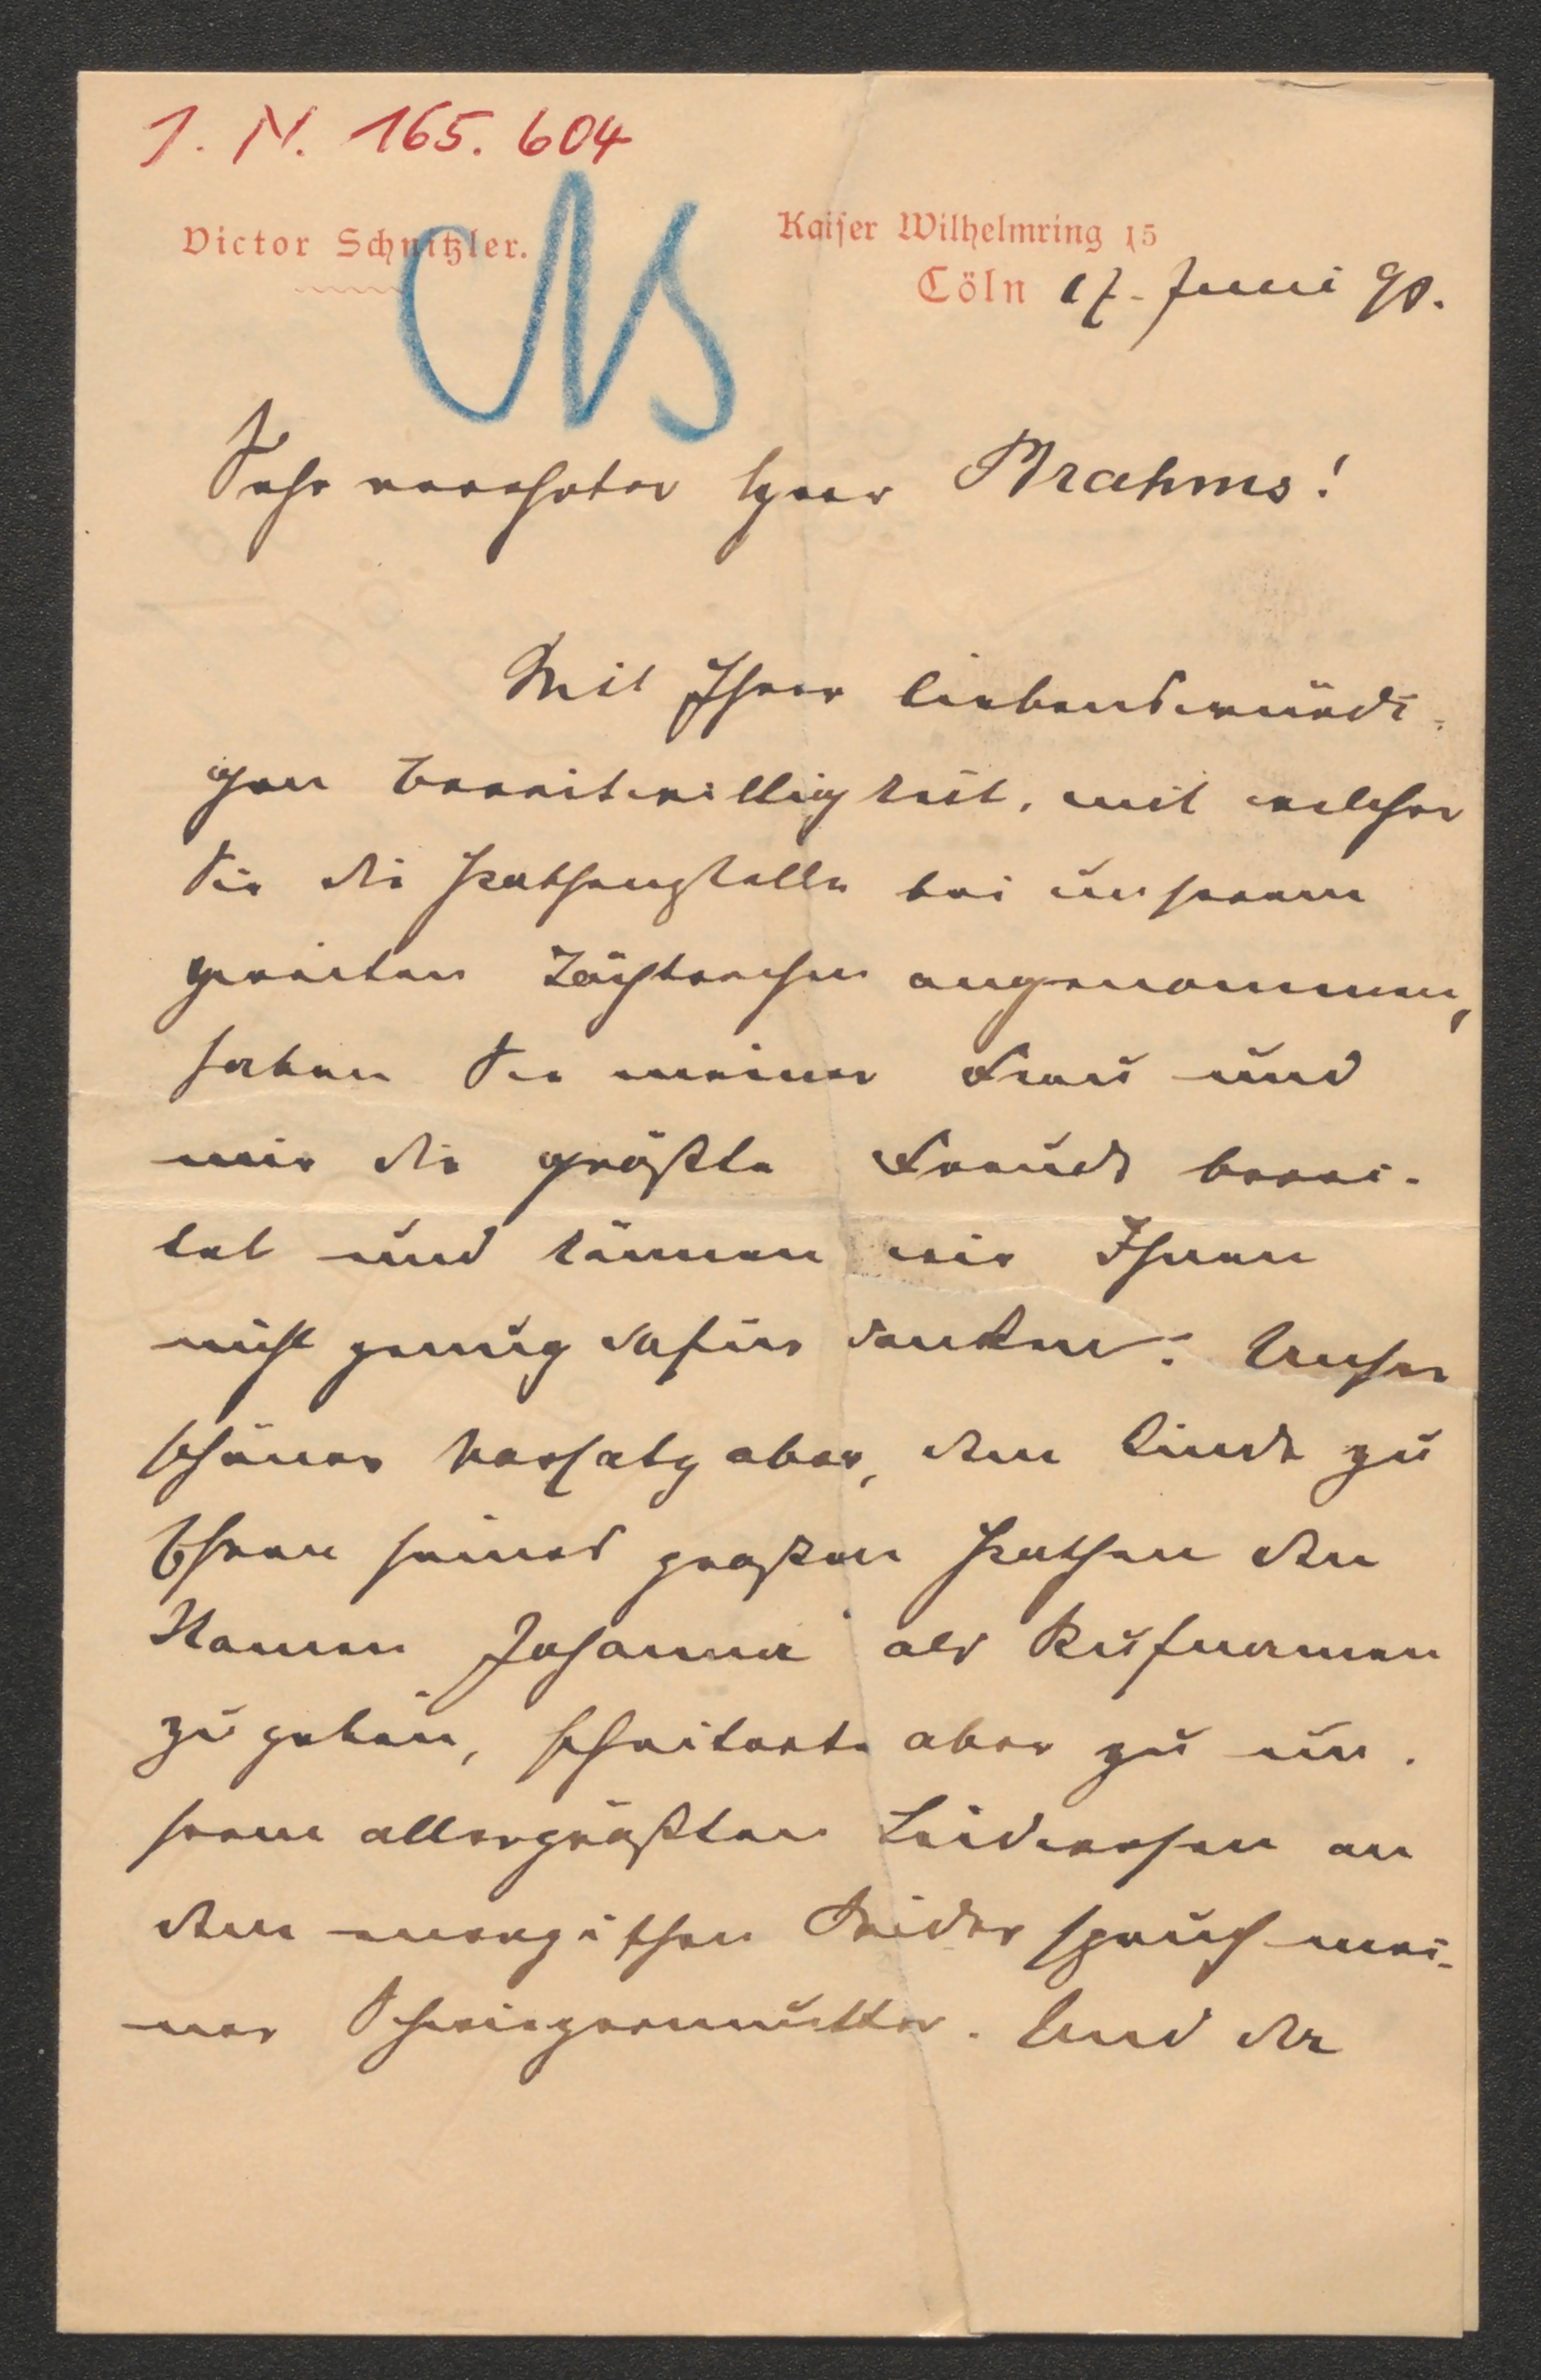 I. N. 165.604
Victor Schnitzler.
Kaiser Wilhelmring 15
Cöln 17. Juni 90.
Sehr verehrter Herr Brahms!
Mit Ihrer liebenswürdi-
gen Bereitwilligkeit, mit welcher
Sie die Pathenstelle bei unserem
zweiten Töchterchen angenommen,
haben Sie meiner Frau und
mir die größte Freude berei-
tet und können wir Ihnen
nicht genug dafür danken. Unser
schöner Vorsatz aber, dem Kinde zu
Ehren seines großen Pathen den
Namen Johanna als Rufnamen
zu geben, scheiterte aber zu un-
serm allergrößten Leidwesen an
dem energischen Widerspruch mei-
ner Schwiegermutter. Und der